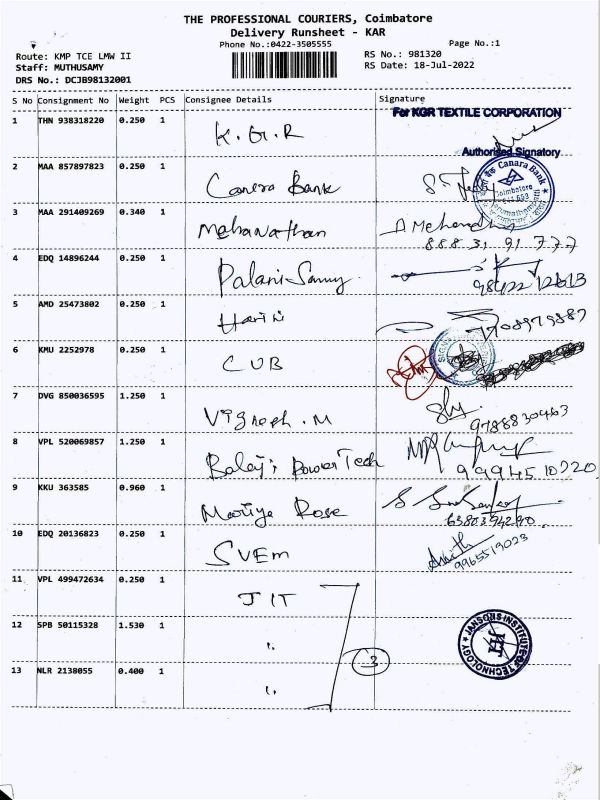 THE PROFESSIONAL COURIERS, Coimbatore
Delivery Runsheet - KAR
Phone No.:0422-3505555
Page No.:1
Route: KMP TCE LMW II
RS No.: 981320
Staff: MUTHUSAMY
RS Date: 18-Jul-2022
DRS No.: DCJB98132001
S No Consignment No Weight PCS Consignee Details Signature
For KGR TEXTILE CORPORATION
1 THN 938318220 0.250 1 K.G.R
Authorised Signatory
2 MAA 857897823 0.250 1 Canera Bank
Canara Bank
Coimbatore
3 MAA 291409269 0.340 1 Mehanathan
888 31 91 777
4 EDQ 14896244 0.250 1 Palani Samy
5 AMD 25473802 0.250 1 Harini
6 KMU 2252978 0.250 1 CUB
7 DVG 850036595 1.250 1 Vignesh .M
9788830463
8 VPL 520069857 1.250 1 Balaji Power Tech
99945 10220
9 KKU 363585 0.960 1 Rose
6380394290
10 EDQ 20136823 0.250 1 SVEM
9965519023
11 VPL 499472634 0.250 1 JIT
12 SPB 50115328 1.530 1 "
JANSONS INSTITUTE OF TECHNOLOGY
JIT
3
13 NLR 2138055 0.400 1 "